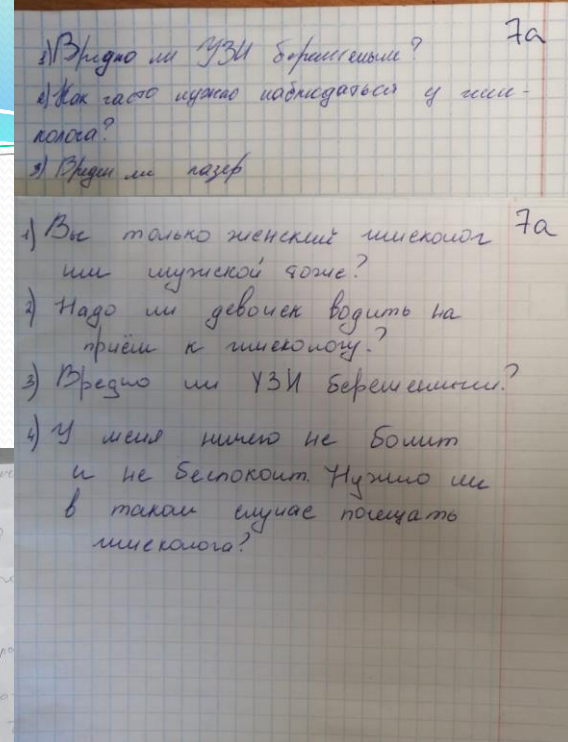 7а
1) Вредно ли УЗИ беременным?
2) Как часто нужно наблюдаться у гине-
колога?
3) Вреден ли лазер
7а
1) Вы только женский гинеколог
или мужской тоже?
2) Надо ли девочек водить на
приём к гинекологу?
3) Вредно ли УЗИ беременным?
4) У меня ничего не болит
и не беспокоит. Нужно ли
в таком случае посещать
гинеколога?